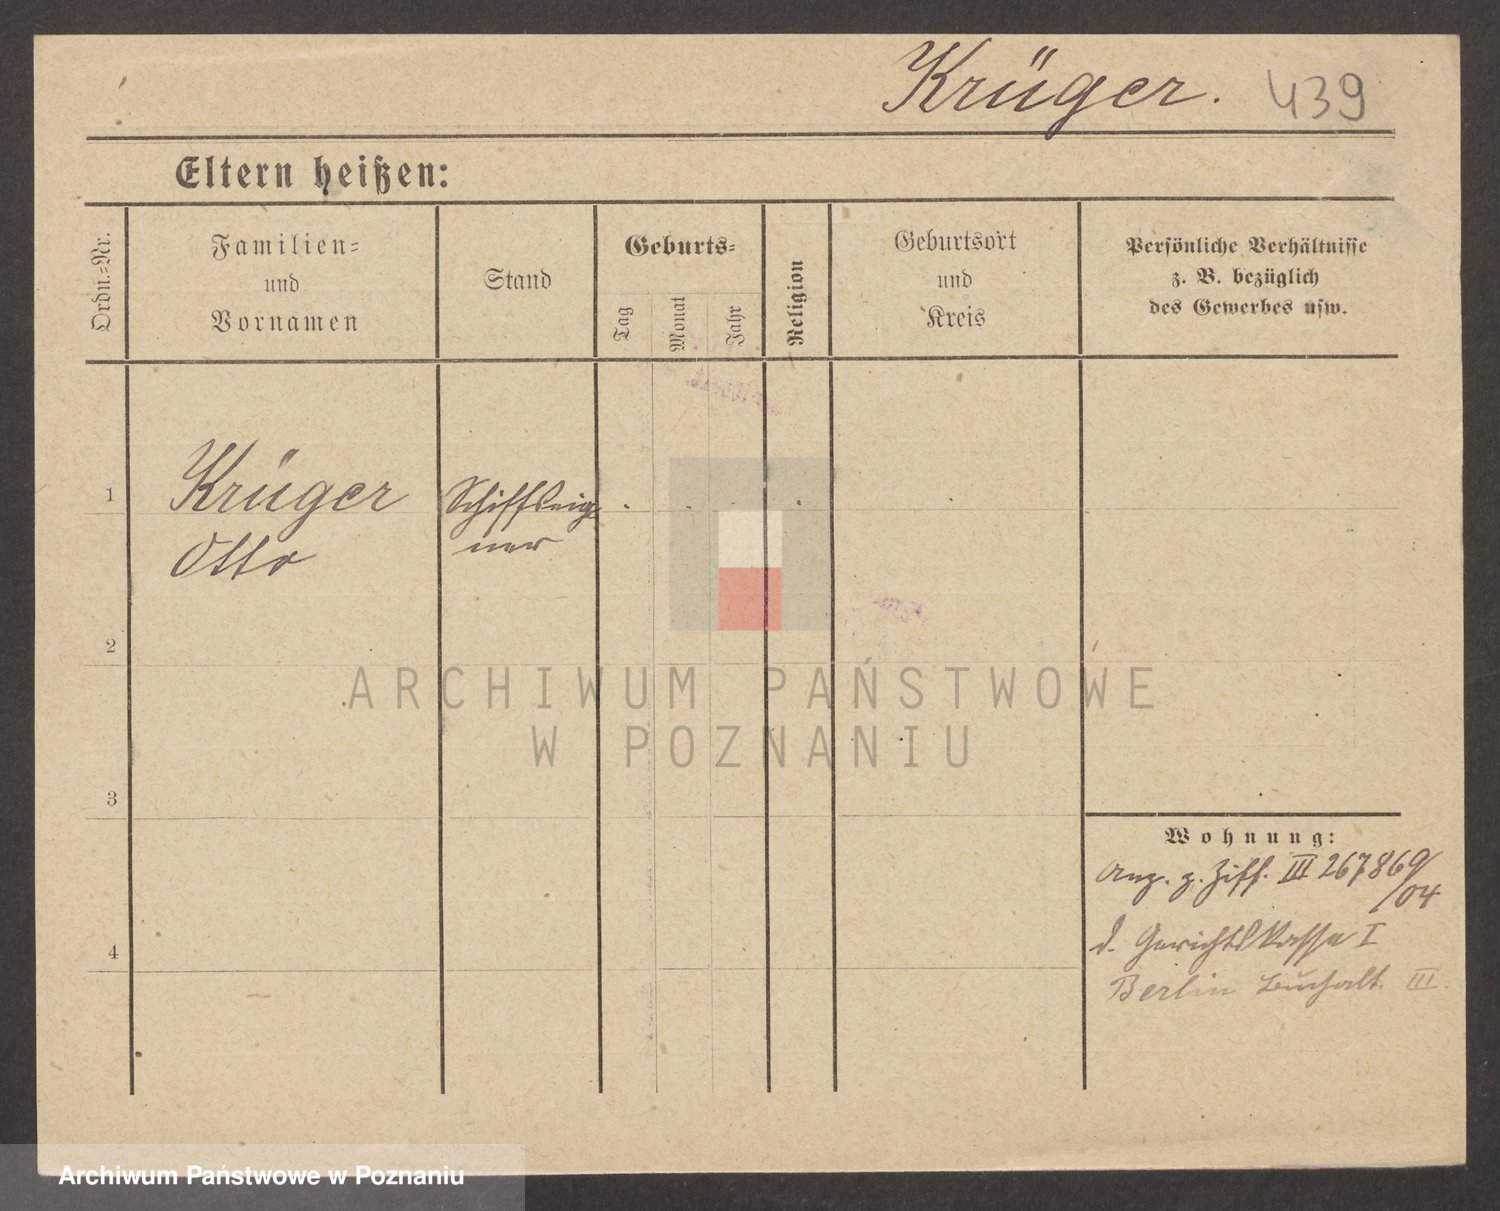 Krüger. 439
Eltern heißen:
Ordn.=Nr.
Familien=
und
Vornamen
Stand
Geburts=
Tag
Monat
Jahr
Religion
Geburtsort
und
Kreis
Persönliche Verhältnisse
z. B. bezüglich
des Gewerbes usw.
1
Krüger
Otto
Schiffseig=
ner
2
ARCHIWUM PAŃSTWOWE
W POZNANIU
3
4
Wohnung:
Anz. z. Ziff. III 267869/
/04
d. Gerichtskasse I
Berlin Buchalt. III.
Archiwum Państwowe w Poznaniu